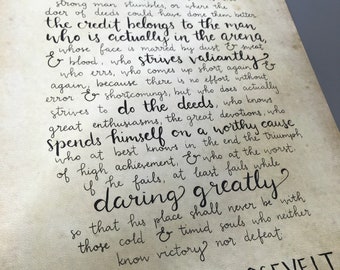 strong man stumbles, or where the
doer of deeds could have done them better
the credit belongs to the man
who is actually in the arena,
whose face is marred by dust & sweat
& blood, who strives valiantly
who errs, who comes up short again &
again, because there is no effort without
error & shortcomings, but who does actually
strives to do the deeds, who knows
great enthusiasms, the great devotions, who
spends himself on a worthy cause
who at best knows in the end the triumph
of high achievement, & who at the worst
if he fails, at least fails while
daring greatly
so that his place shall never be with
those cold & timid souls who neither
know victory nor defeat
ROOSEVELT